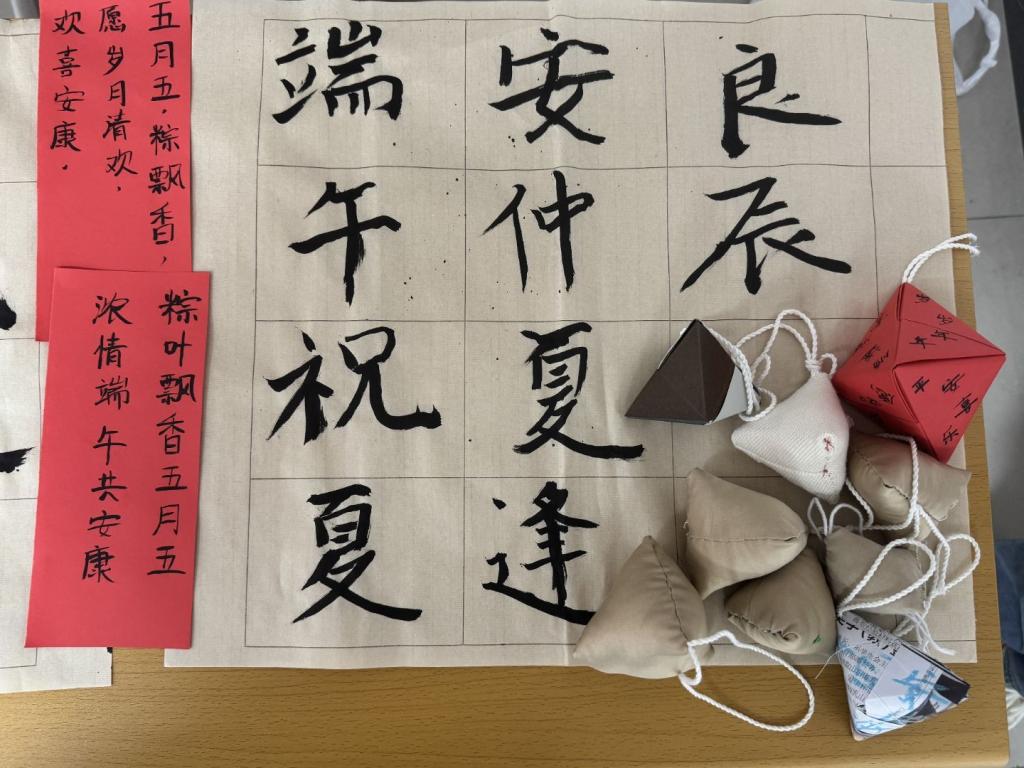 五月五，粽飘香，
愿岁月清欢，
欢喜安康。
粽叶飘香五月五
浓情端午共安康
端午祝夏
安仲夏逢
良辰
平安